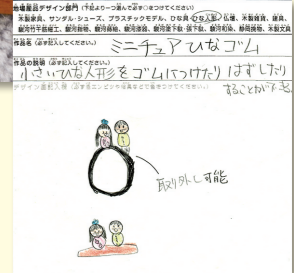 地場産品デザイン部門(下記より一つ選んで必ず○をつけてください)
木製家具、サンダル・シューズ、プラスチックモデル、ひな具・ひな人形、仏壇、木製雑貨、建具、
駿河竹千筋細工、駿河蒔絵、駿河漆器、駿河和染、静岡挽物、木製文具
作品名(必ず記入してください)
ミニチュアひなゴム
作品の説明(必ず記入してください)
小さいひな人形をゴムにつけたりはずしたり
することができる
取り外し可能